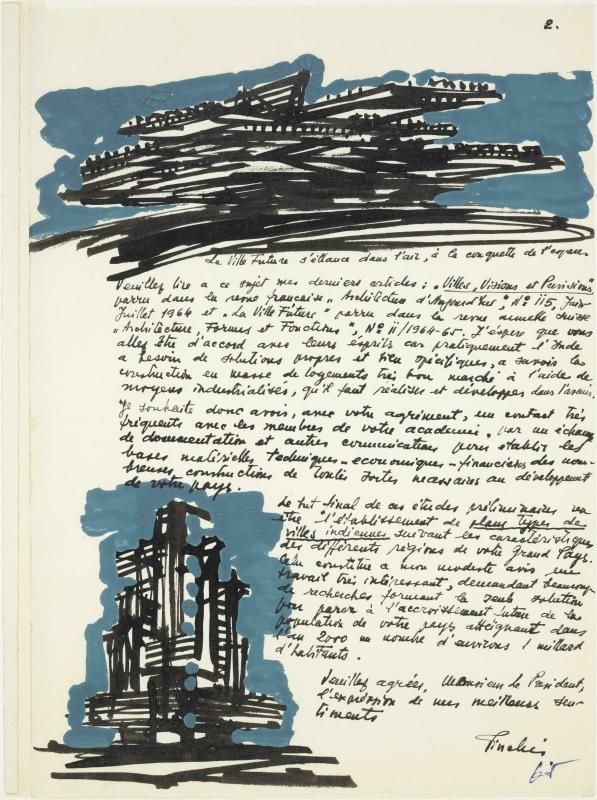 2.
La Ville Future s'élance dans l'air, à la conquette de l'espace
Veuillez lire a ce sujet mes derniers articles : "Villes, Visions et Previsions"
parru dans la revue francaise "Architecture d'Aujourd'hui", Nº 115, Juin-
Juillet 1964 et "La Ville Future" parru dans la revue annuelle suisse
"Architecture, Formes et Fonctions", Nº 11/1964-65. J'éspère que vous
allez être d'accord avec leurs esprits car pratiquement l'Inde
a besoin de solutions propres et bien spécifiques, a savoir la
construction en masse de logements très bon marché à l'aide de
moyens industrialisés, qu'il faut réaliser et développer dans l'avenir.
Je souhaite donc avoir, avec votre agrément, un contact très
fréquents avec les membres de votre academie, par un échange
de documentation et autres communications pour établir les
bases matérielles techniques-economiques-financières des nom-
breuses constructions de toutes sortes necessaires au développement
de votre pays.
Le but final de ces études préliminaires va
être l'établissement de plans types de
villes indiennes suivant les caractéristiques
des différents régions de votre Grand Pays.
Cela constitue a mon modeste avis un
travail très intéressant, demandant beaucoup
de recherches formant la seule solution
pour parer à l'accroissement future de la
population de votre pays atteignant dans
l'an 2000 un nombre d'environs 1 milliard
d'habitants.
Veuillez agréer, Monsieur le President,
l'expression de mes meilleurs sen-
timents